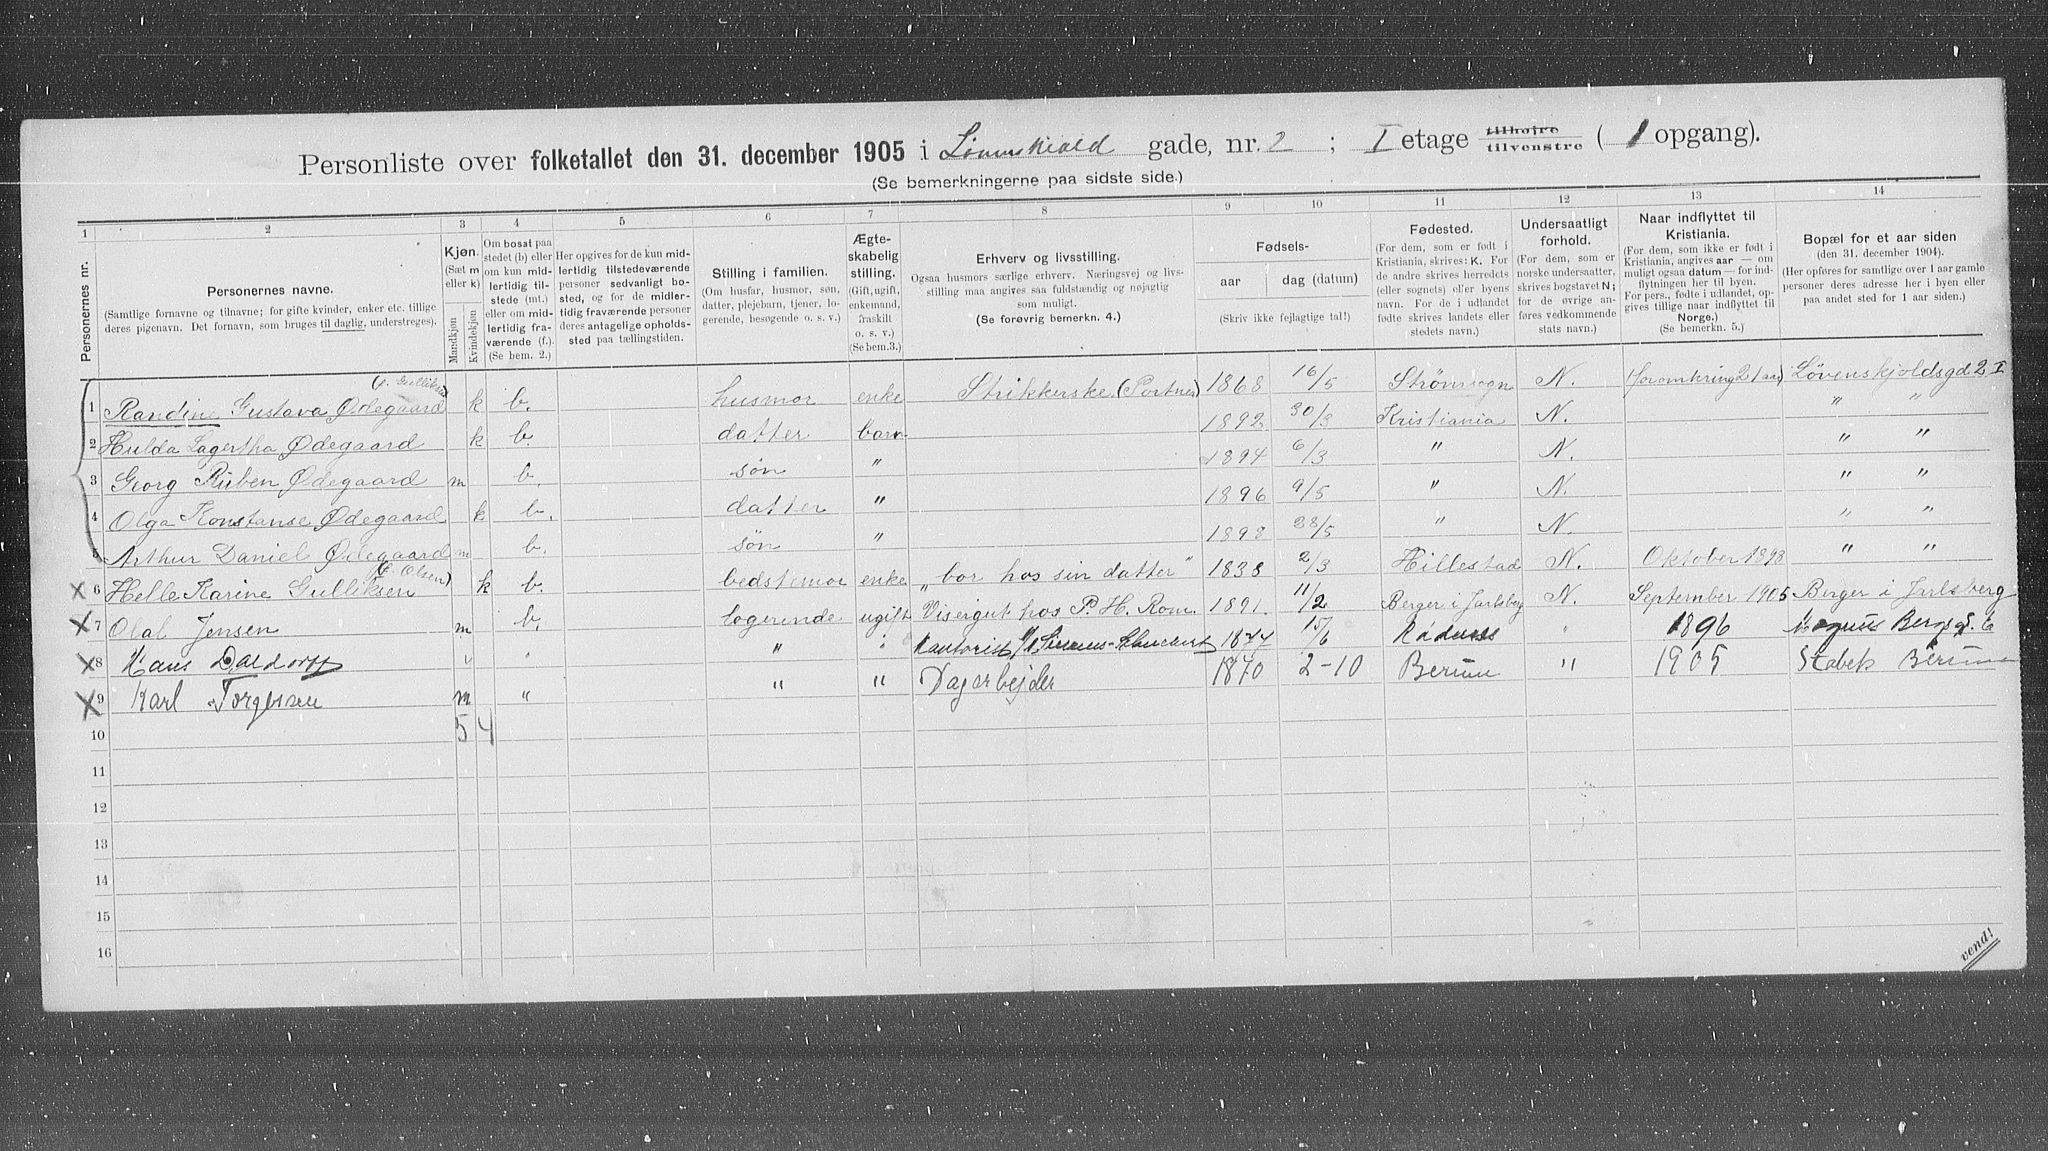 Personliste over folketallet den 31. december 1905 i Løvenskiold gade, nr. 2 ; I etage tilhøire tilvenstre ( 1 opgang).
(Se bemerkningerne paa sidste side.)
1 2 3 4 5 6 7 8 9 10 11 12 13 14
Personernes nr.
Personernes navne.
(Samtlige fornavne og tilnavne; for gifte kvinder, enker etc. tillige deres pigenavn. Det fornavn, som bruges til daglig, understreges).
Kjøn.
(Sæt m eller k)
Mandkjøn
Kvindekjøn
Om bosat paa stedet (b) eller om kun midlertidig tilstede (mt.) eller om midlertidig fraværende (f.) (Se bem. 2.)
Her opgives for de kun midlertidig tilstedeværende personer sedvanligt bosted, og for de midlertidig fraværende personer deres antagelige opholdssted paa tællingstiden.
Stilling i familien.
(Om husfar, husmor, søn, datter, plejebarn, tjener, logerende, besøgende o. s. v.)
Ægteskabelig stilling.
(Gift, ugift, enkemand, fraskilt o. s. v.) (Se bem. 3.)
Erhverv og livsstilling.
Ogsaa husmors særlige erhverv. Næringsvej og livsstilling maa angives saa fuldstændig og nøjagtig som muligt.
(Se forøvrig bemerkn. 4.)
Fødsels-
aar dag (datum)
(Skriv ikke fejlagtige tal!)
Fødested.
(For dem, som er født i Kristiania, skrives: K. For de andre skrives herredets (eller sognets) eller byens navn. For de i udlandet fødte skrives landets eller stedets navn.)
Undersaatligt forhold.
(For dem, som er norske undersaatter, skrives bogstavet N; for de øvrige anføres vedkommende stats navn.)
Naar indflyttet til Kristiania.
(For dem, som ikke er født i Kristiania, angives aar — om muligt ogsaa datum — for indflytningen her til byen. For pers., fødte i udlandet, opgives tillige naar indflyttet til Norge.)
(Se bemerkn. 5.)
Bopæl for et aar siden
(den 31. december 1904).
(Her opføres for samtlige over 1 aar gamle personer deres adresse her i byen eller paa andet sted for 1 aar siden.)
(f. Gulliksen)
1 Randine Gustava Ødegaard k b. husmor enke Strikkerske (Portner) 1868 16/5 Strømsogn N. for omkring 21 aar Løvenskjoldsgd 2 I
2 Hulda Lagertha Ødegaard k b. datter barn 1892 30/3 Kristiania N. " "
3 Georg Ruben Ødegaard m b. søn " 1894 6/3 " N. " "
4 Olga Konstanse Ødegaard k b. datter " 1896 9/5 " N. " "
5 Arthur Daniel Ødegaard m b. søn " 1898 28/5 " N. " "
(f. Olsen)
6 Helle Karine Gulliksen k b. bedstemor enke „bor hos sin datter" 1838 2/3 Hillestad N. Oktober 1898 " "
7 Olaf Jensen m b. logerende ugift Visergut hos P. H. Rom. 1891. 11/2 Berger i Jarlsberg N. September 1905 Berger i Jarlsberg
8 Hans Daldorff " " " " Kontorist 1877 15/6 " 1896 Magnus Bergsg. 6
9 Karl Torgersen m " " " Dagarbejder 1870 2-10 Berum " 1905 Stabek Berum
5 4
10
11
12
13
14
15
16
vend!